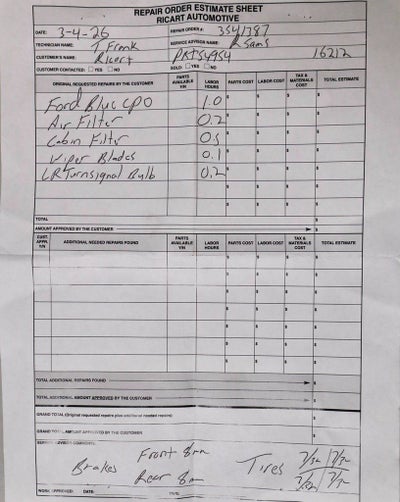 REPAIR ORDER ESTIMATE SHEET
RICART AUTOMOTIVE
DATE: 3-4-26 REPAIR ORDER #: 3541387
TECHNICIAN NAME: T. Frank SERVICE ADVISOR NAME: R Sams
CUSTOMER'S NAME: Ricart PRT54954 16212
CUSTOMER CONTACTED: YES NO SOLD: YES NO
ORIGINAL REQUESTED REPAIRS BY THE CUSTOMER PARTS AVAILABLE Y/N LABOR HOURS PARTS COST LABOR COST TAX & MATERIALS COST TOTAL ESTIMATE
Ford Blue CPO 1.0 $ $ $ $
Air Filter 0.2 $ $ $ $
Cabin Filter 0.5 $ $ $ $
Wiper Blades 0.1 $ $ $ $
LR Turnsignal Bulb 0.2 $ $ $ $
$ $ $ $
$ $ $ $
TOTAL $
AMOUNT APPROVED BY THE CUSTOMER $
CUST. APPR. Y/N ADDITIONAL NEEDED REPAIRS FOUND PARTS AVAILABLE Y/N LABOR HOURS PARTS COST LABOR COST TAX & MATERIALS COST TOTAL ESTIMATE
$ $ $ $
$ $ $ $
$ $ $ $
$ $ $ $
$ $ $ $
$ $ $ $
$ $ $ $
TOTAL ADDITIONAL REPAIRS FOUND $
TOTAL ADDITIONAL AMOUNT APPROVED BY THE CUSTOMER $
GRAND TOTAL (Original requested repairs plus additional needed repairs) $
GRAND TOTAL AMOUNT APPROVED BY THE CUSTOMER $
SERVICE ADVISOR COMMENTS:
Brakes Front 8mm Tires 7/32 7/32
Rear 8mm 7/32 7/32
WORK APPROVED: DATE: TIME: